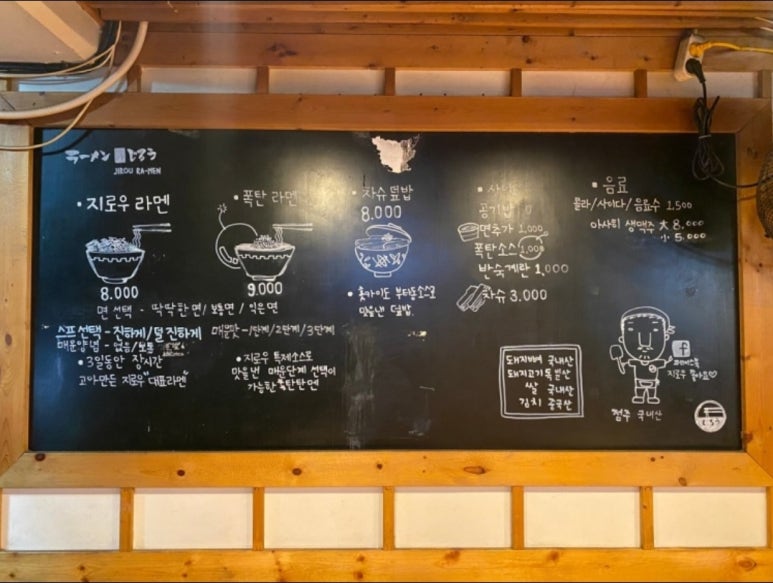 ラーメン 日 じろう
JIROU RA-MEN
• 지로우 라멘
8.000
면 선택 - 딱딱한면/보통면/익은면
스프선택 - 진하게/덜진하게
매운양념 - 없음/보통
• 3일동안 장시간
고아만든 지로우 "대표라멘"
• 폭탄 라멘
9.000
매운맛 - 1단계/2단계/3단계
• 지로우 특제소스로
맛을낸 매운단계 선택이
가능한 탄탄멘
• 차슈덮밥
8.000
• 홋카이도 부타동소스로
맛을낸 덮밥.
• 사이
공기밥
면추가 1,000
폭탄소스 1,000
반숙계란 1,000
차슈 3.000
• 음료
콜라/사이다/음료수 1,500
아사히 생맥주 大 8,000
小 5,000
돼지뼈 국내산
돼지고기 독일산
쌀 국내산
김치 중국산
f
페이스북
지로우 좋아요♡
점주 국내산
じろう